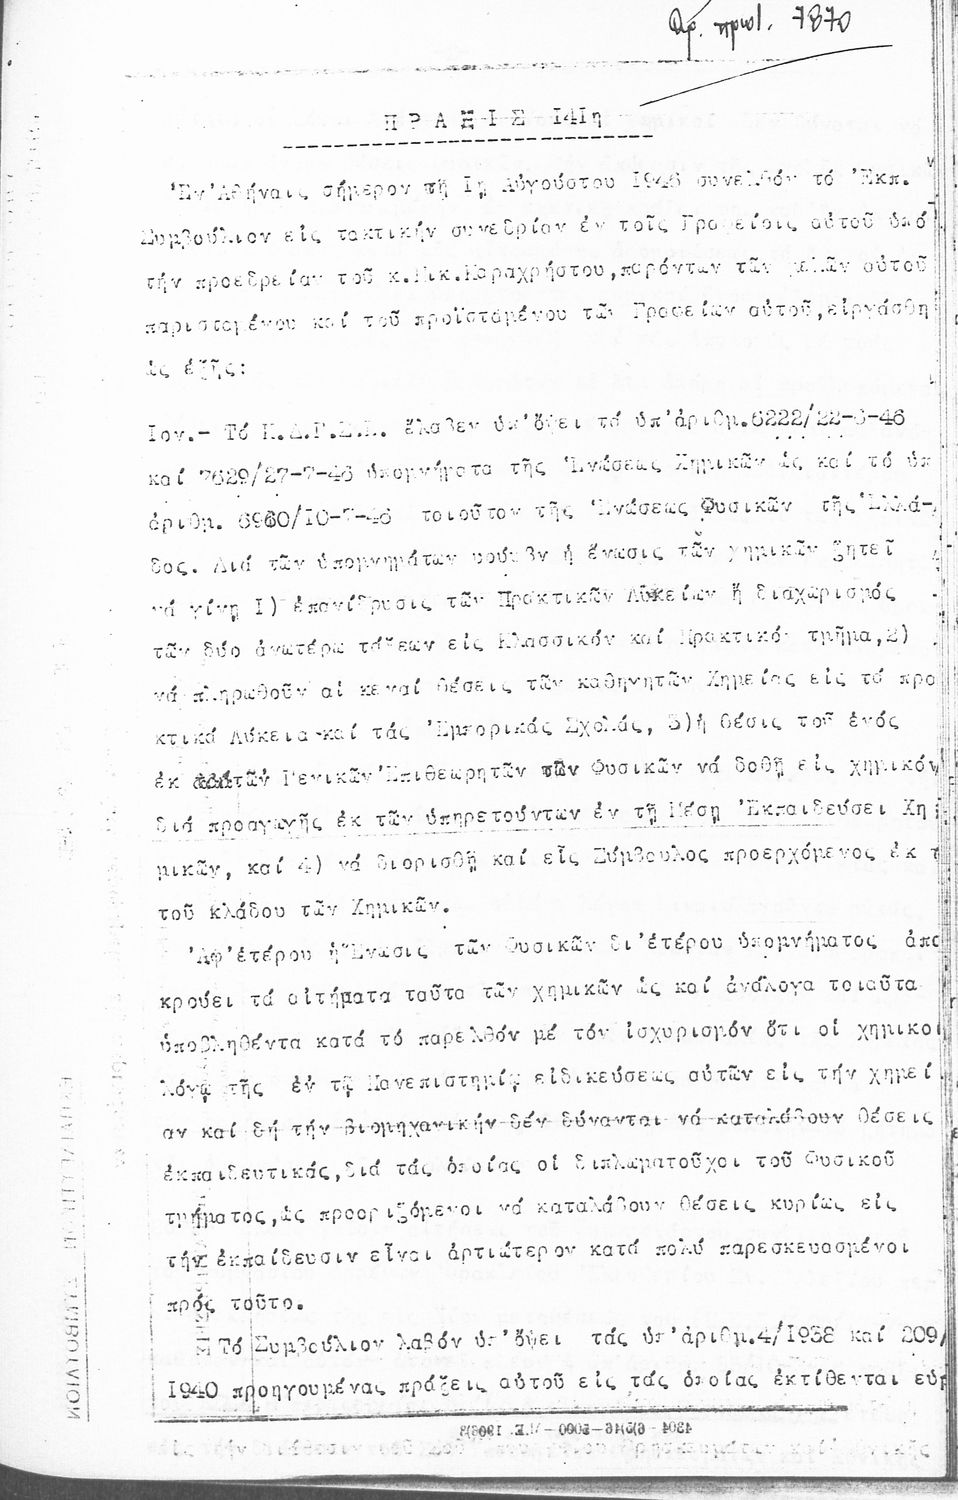 Ἀρ. πρωτ. 7870
Π Ρ Α Ξ Ι Σ 141η
Ἐν Ἀθήναις σήμερον τῇ Ιῃ Αὐγούστου 1946 συνελθόν τό Ἐκπ.
Συμβούλιον εἰς τακτικήν συνεδρίαν ἐν τοῖς Γραφείοις αὐτοῦ ὑπό
τήν προεδρείαν τοῦ κ.Νικ.Καραχρήστου,παρόντων τῶν μελῶν αὐτοῦ
παρισταμένου καί τοῦ προϊσταμένου τῶν Γραφείων αὐτοῦ,εἰργάσθη
ὡς ἑξῆς:
Ιον.- Τό Κ.Δ.Γ.Σ.Ε. ἔλαβεν ὑπ'ὄψει τά ὑπ'ἀριθμ.6222/22-6-46
καί 7629/27-7-46 ὑπομνήματα τῆς Ἑνώσεως Χημικῶν ὡς καί τό ὑπ
ἀριθμ. 6960/10-7-46 τοιοῦτον τῆς Ἑνώσεως Φυσικῶν τῆς Ἑλλά-
δος. Διά τῶν ὑπομνημάτων ἡ ἕνωσις τῶν χημικῶν ζητεῖ
νά γίνῃ Ι) ἐπανίδρυσις τῶν Πρακτικῶν Λυκείων ἤ διαχωρισμός
τῶν δύο ἀνωτέρω τάξεων εἰς Κλασσικόν καί Πρακτικόν τμῆμα,2)
νά πληρωθοῦν αἱ κεναί θέσεις τῶν καθηγητῶν Χημείας εἰς τά πρα
κτικά Λύκεια καί τάς Ἐμπορικάς Σχολάς, 3)ἡ θέσις τοῦ ἑνός
ἐκ τῶν Γενικῶν Ἐπιθεωρητῶν τῶν Φυσικῶν νά δοθῇ εἰς χημικόν
διά προαγωγῆς ἐκ τῶν ὑπηρετούντων ἐν τῇ Μέσῃ Ἐκπαιδεύσει Χη
μικῶν, καί 4) νά διορισθῇ καί εἷς Σύμβουλος προερχόμενος ἐκ
τοῦ κλάδου τῶν Χημικῶν.
Ἀφ'ἑτέρου ἡ Ἕνωσις τῶν Φυσικῶν δι'ἑτέρου ὑπομνήματος ἀπο
κρούει τά αἰτήματα ταῦτα τῶν χημικῶν ὡς καί ἀνάλογα τοιαῦτα
ὑποβληθέντα κατά τό παρελθόν μέ τόν ἰσχυρισμόν ὅτι οἱ χημικοί
λόγῳ τῆς ἐν τῷ Πανεπιστημίῳ εἰδικεύσεως αὐτῶν εἰς τήν χημεί
αν καί δή τήν βιομηχανικήν δέν δύνανται νά καταλάβουν θέσεις
ἐκπαιδευτικάς,διά τάς ὁποίας οἱ διπλωματοῦχοι τοῦ Φυσικοῦ
τμήματος,ὡς προοριζόμενοι νά καταλάβουν θέσεις κυρίως εἰς
τήν ἐκπαίδευσιν εἶναι ἀρτιώτερον κατά πολύ παρεσκευασμένοι
πρός τοῦτο.
Τό Συμβούλιον λαβόν ὑπ'ὄψει τάς ὑπ'ἀριθμ.4/1938 καί 209/
1940 προηγουμένας πράξεις αὐτοῦ εἰς τάς ὁποίας ἐκτίθενται εὐρ